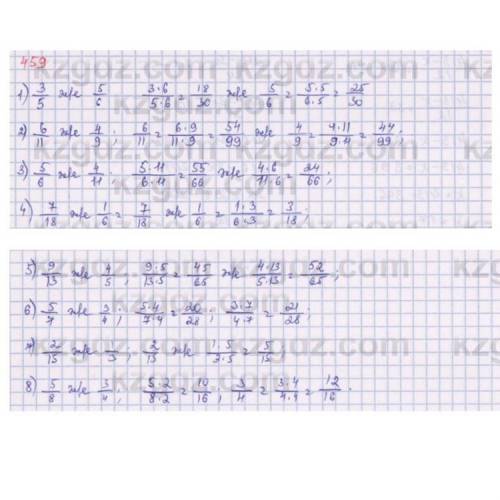 459
1) 3/5 және 5/6 3·6/5·6 = 18/30 және 5/6 = 5·5/6·5 = 25/30
2) 6/11 және 4/9; 6/11 = 6·9/11·9 = 54/99 және 4/9 = 4·11/9·11 = 44/99;
3) 5/6 және 4/11; 5·11/6·11 = 55/66 және 4·6/11·6 = 24/66;
4) 7/18 және 1/6 = 7/18 және 1/6 = 1·3/6·3 = 3/18;
5) 9/13 және 4/5; 9·5/13·5 = 45/65 және 4·13/5·13 = 52/65;
6) 5/7 және 3/4; 5·4/7·4 = 20/28; 3·7/4·7 = 21/28;
7) 2/15 және 1/3; 2/15 және 1·5/3·5 = 5/15
8) 5/8 және 3/4; 5·2/8·2 = 10/16, 3/4 = 3·4/4·4 = 12/16.
kzgdz.com